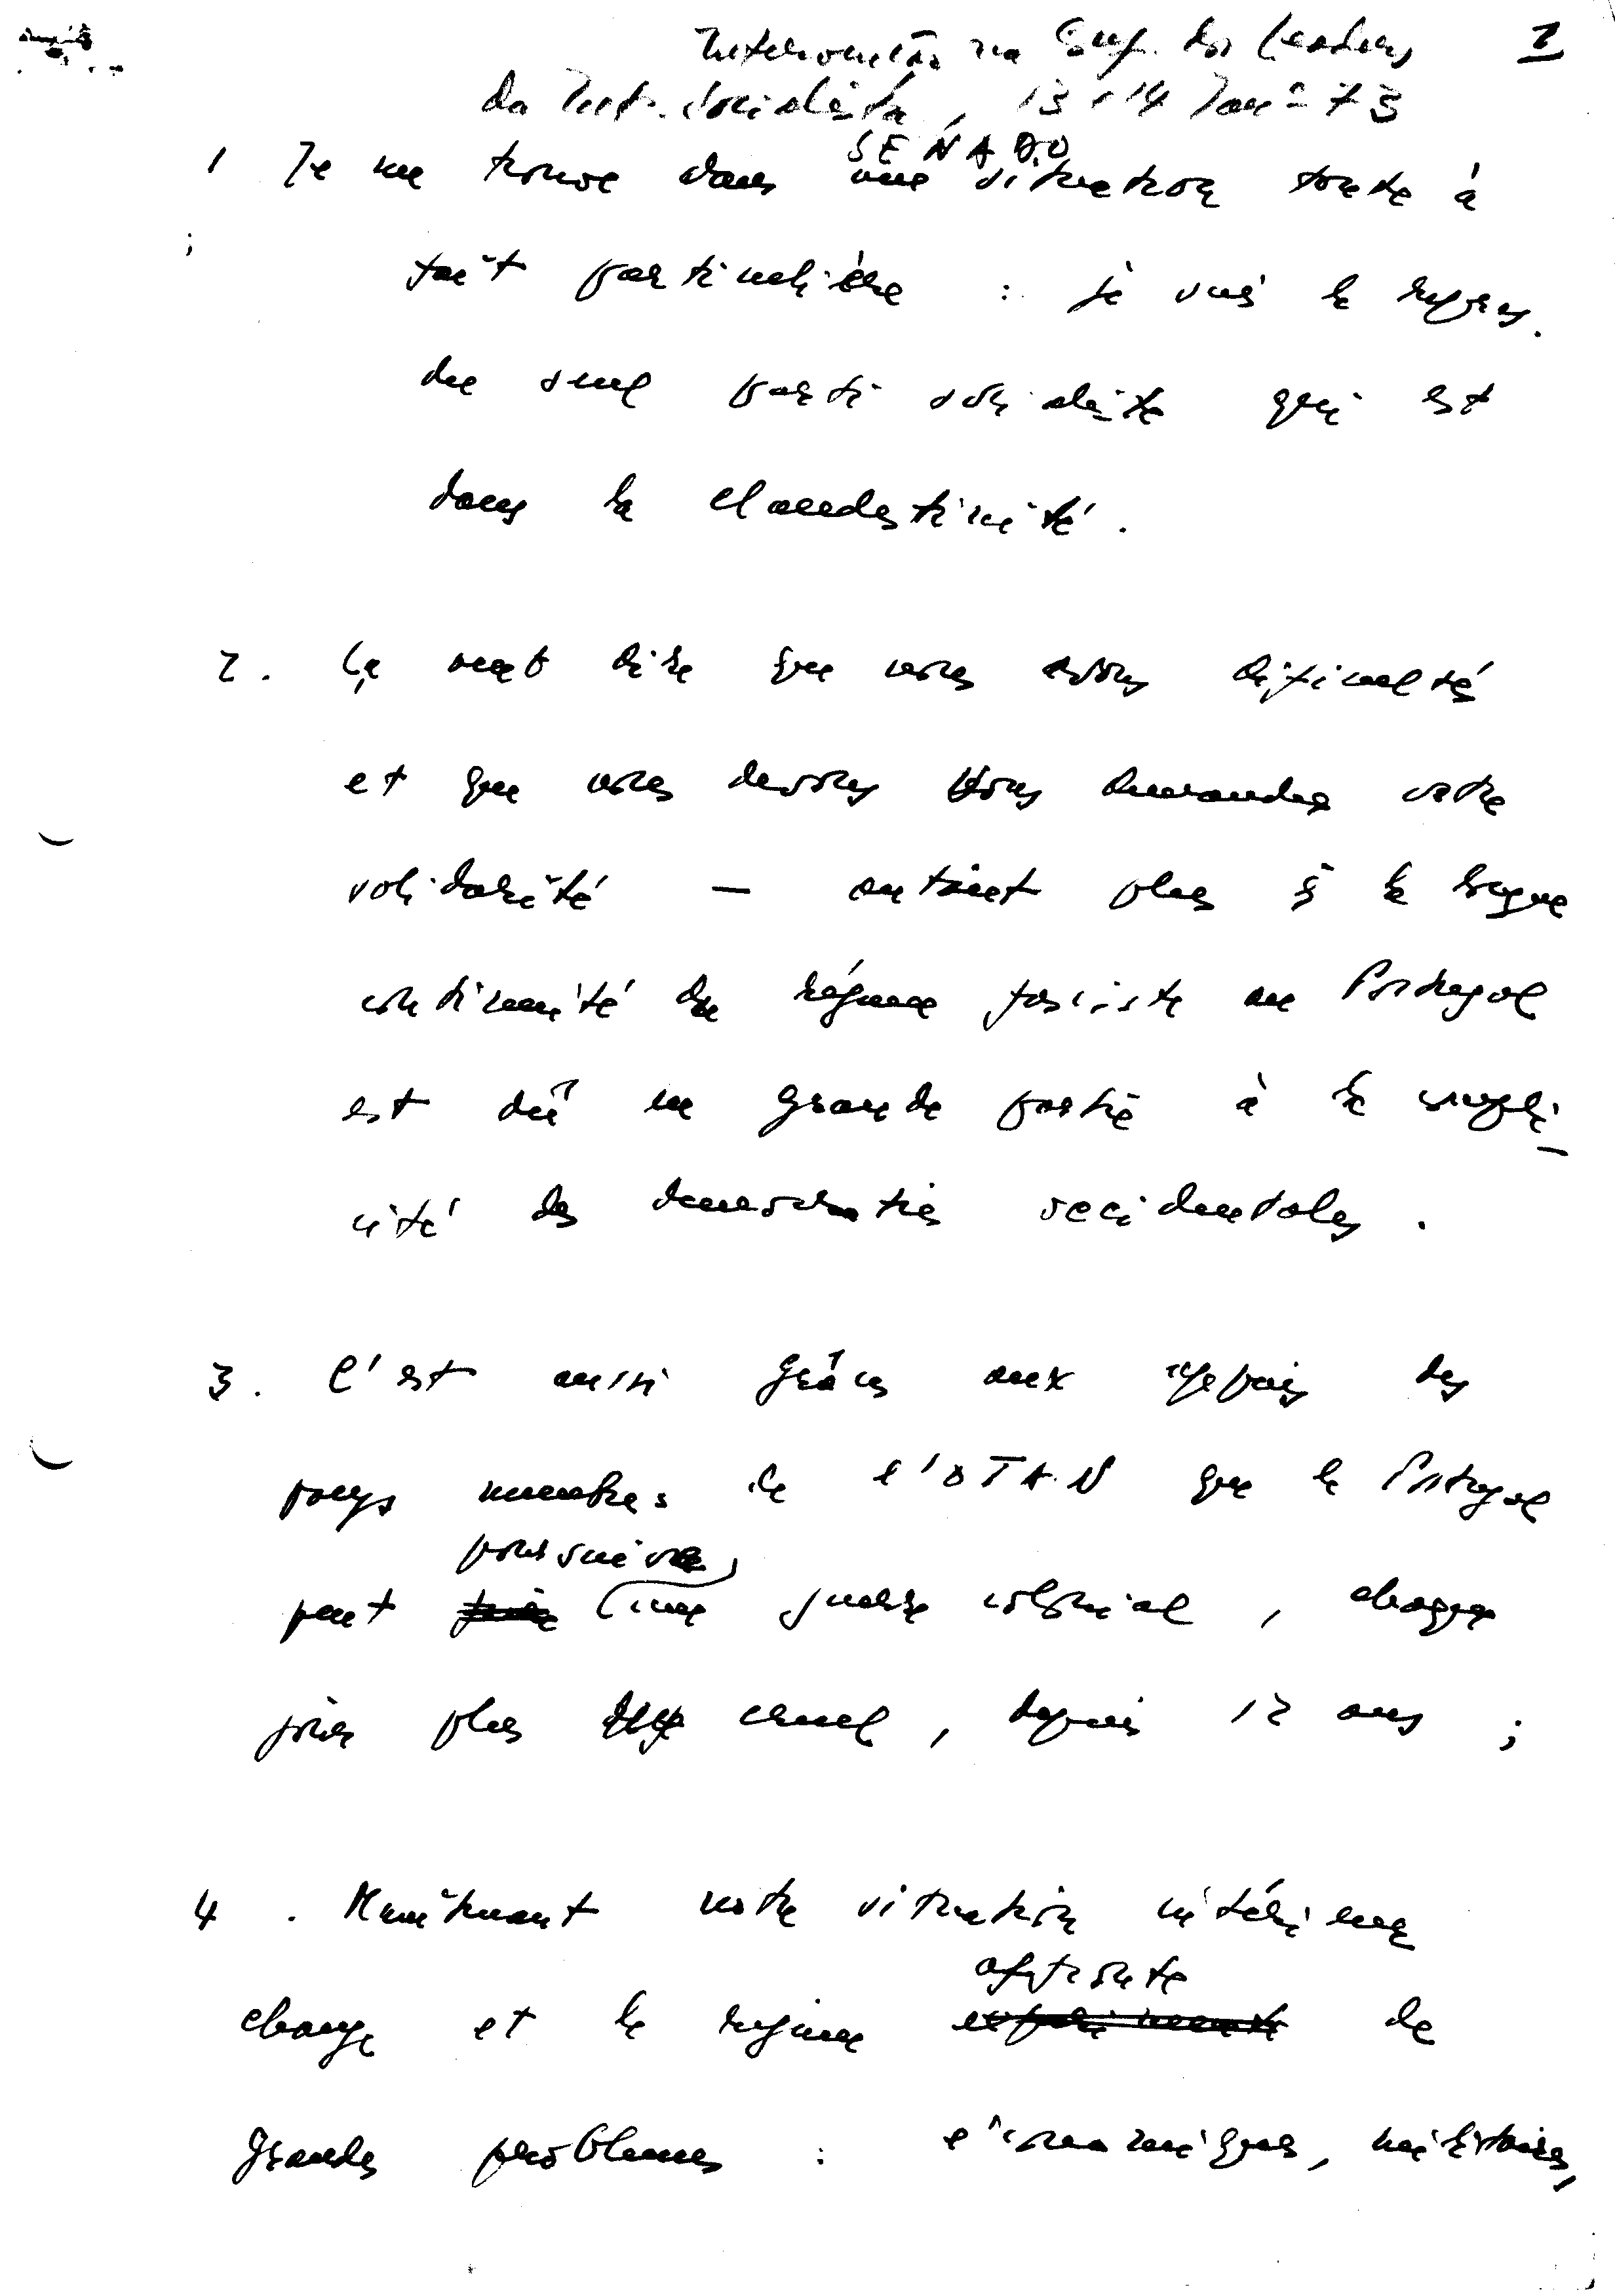 Intervenção na Conf. dos Leaders
I
da Int. Socialista, 13 e 14 Jan-73
SENADO
1 Je me trouve dans une situation toute à
fait particulière : je suis le repres.
du seul parti socialiste qui est
dans la clandestinité.
2. Ça veut dire que nous avons dificultés
et que nous devons vous demander votre
solidarité — autant plus que la longue
continuité du régime fasciste au Portugal
est dû en grande partie à la compli-
cité des democraties occidentales.
3. C'est aussi grâces aux appuis des
pays membres de l'OTAN que le Portugal
poursuivre
peut faire une guerre colonial, chaque
jour plus cruel, depuis 12 ans ;
4. Maintenant notre situation intérieur
affronte
change et le regime de
grandes problemes : économiques, militaires,